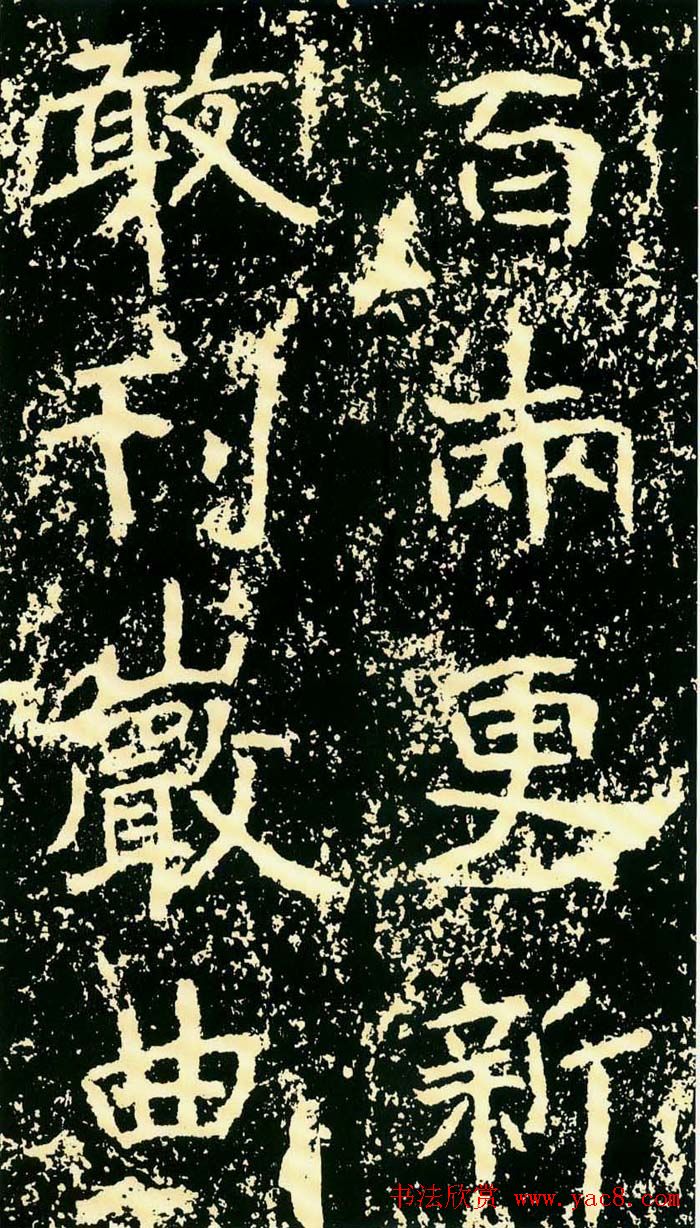 百兩更新
敢刊巖曲
书法欣赏 www.yac8.com